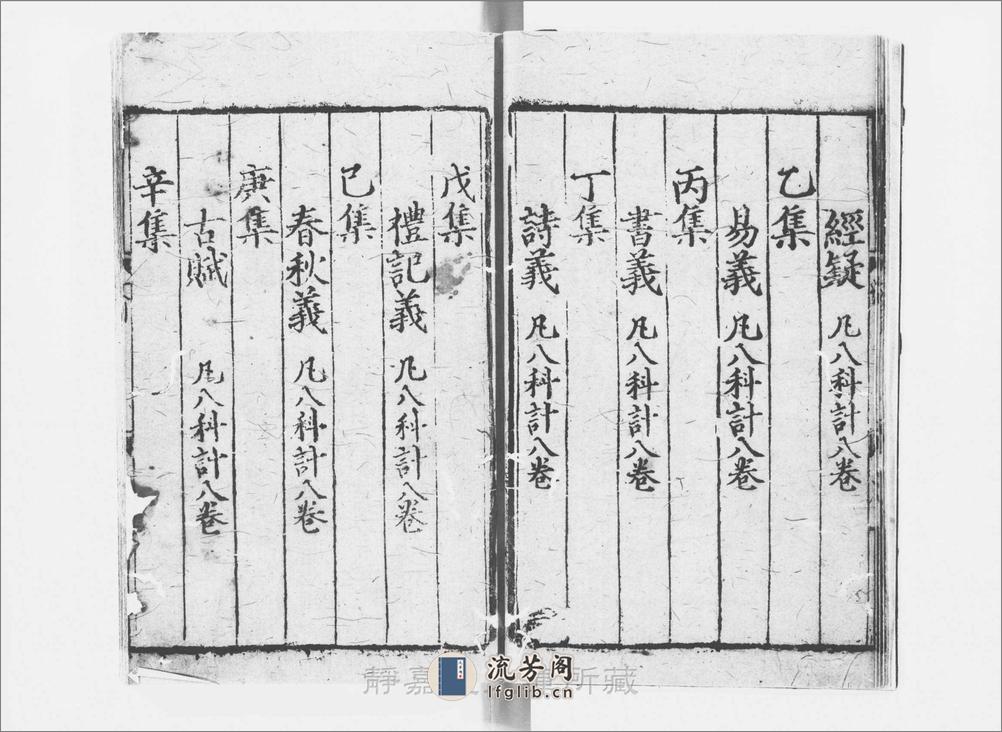 經疑 凡八科計八卷
乙集
易義 凡八科計八卷
丙集
書義 凡八科計八卷
丁集
詩義 凡八科計八卷
戊集
禮記義 凡八科計八卷
己集
春秋義 凡八科計八卷
庚集
古賦 凡八科計八卷
辛集
靜嘉 所藏
流芳阁
lfglib.cn